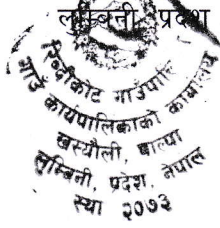 लुम्बिनी प्रदेश
गाउँ कार्यपालिकाको कार्यालय
खस्यौली, पाल्पा
लुम्बिनी, प्रदेश, नेपाल
स्था २०७३